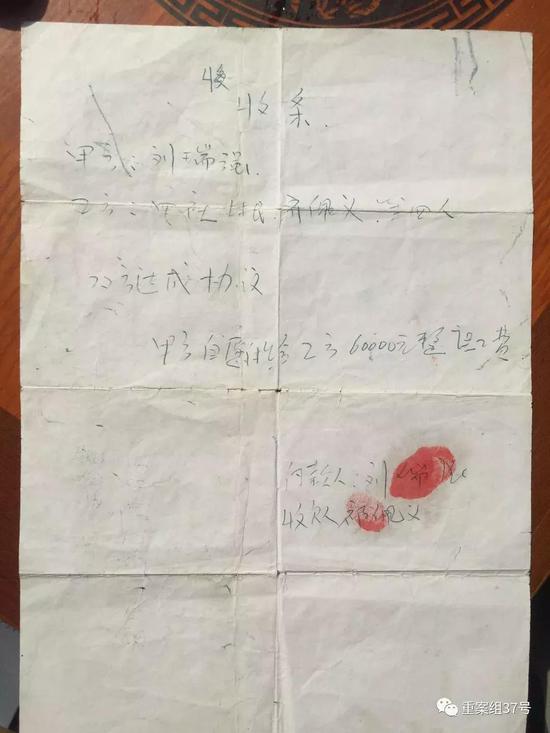 收
收条.
甲方:刘瑞强.
乙方:佩义 等四人
双方达成协议
甲方自愿补给乙方60000元整误工费
付款人:刘瑞强
收款人 佩义
重案组37号